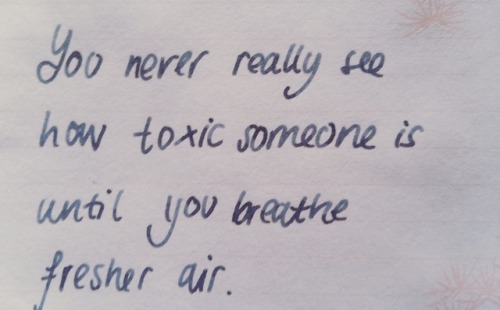 You never really see
how toxic someone is
until you breathe
fresher air.